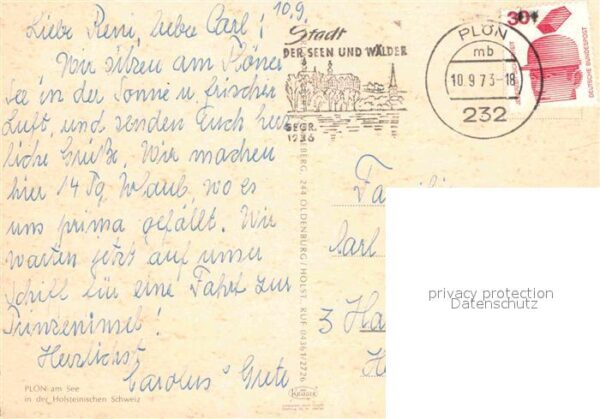 10.9.
Liebe Reni, lieber Carl!
Wir sitzen am Plöner
See in der Sonne u. frischer
Luft, und senden Euch herz
liche Grüße. Wir machen
hier 14 Tg. Urlaub, wo es
uns prima gefällt. Wir
warten jetzt auf unser
Schiff für eine Fahrt zur
Prinzeninsel!
Herzlichst
Carolus Grete
PLÖN am See
in der Holsteinischen Schweiz
Stadt
DER SEEN UND WÄLDER
GEGR.
1236
PLÖN
mb
10.9.73-18
232
30
DEUTSCHE BUNDESPOST
244 OLDENBURG/HOLST. RUF 04361/2726
Fa
Carl
3 Ha
privacy protection
Datenschutz